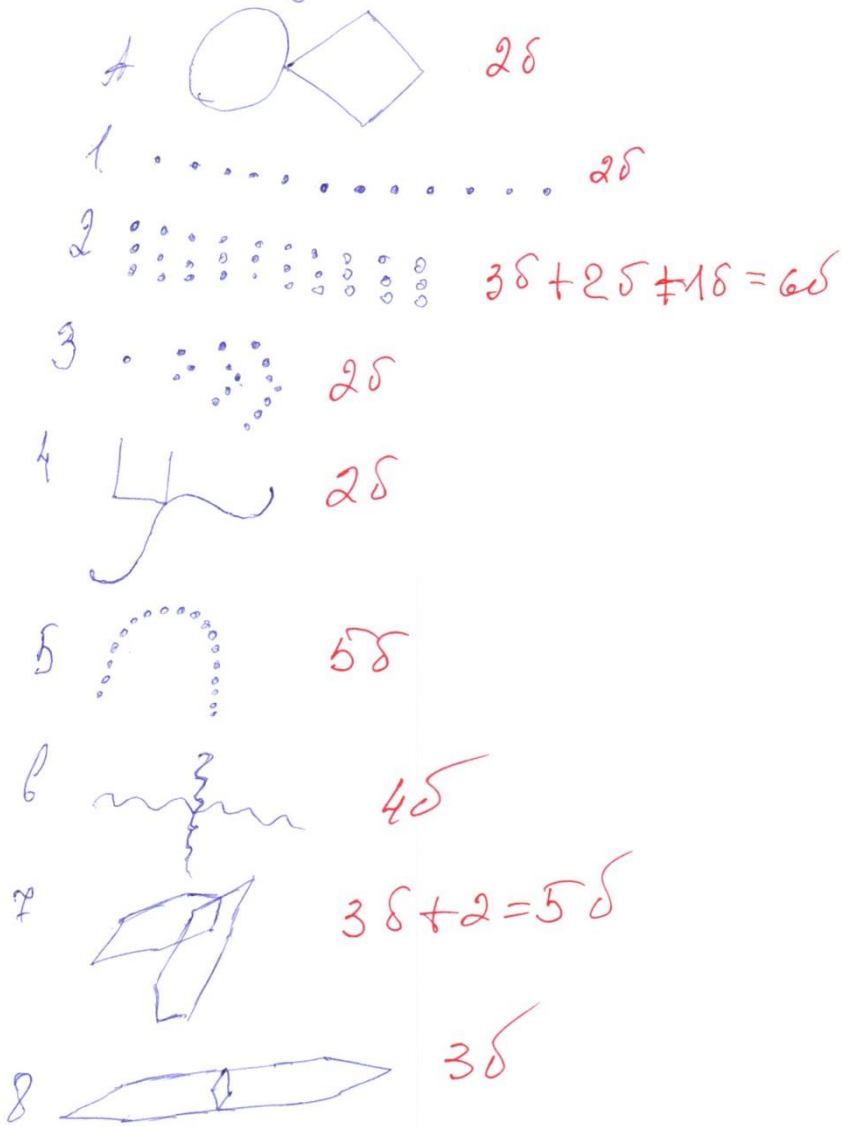 А 2б
1 2б
2 3б+2б+1б=6б
3 2б
4 2б
5 5б
6 4б
7 3б+2=5б
8 3б